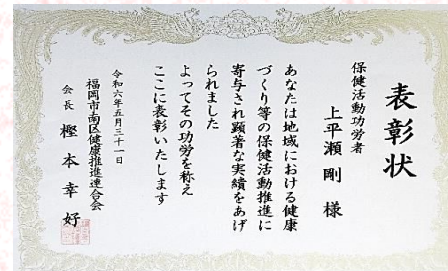 表彰状
保健活動功労者
上平瀬 剛 様
あなたは地域における健康
づくり等の保健活動推進に
寄与され顕著な実績をあげ
られました
よってその功労を称え
ここに表彰いたします
令和六年五月三十一日
福岡市南区健康推進連合会
会長 樫本幸好